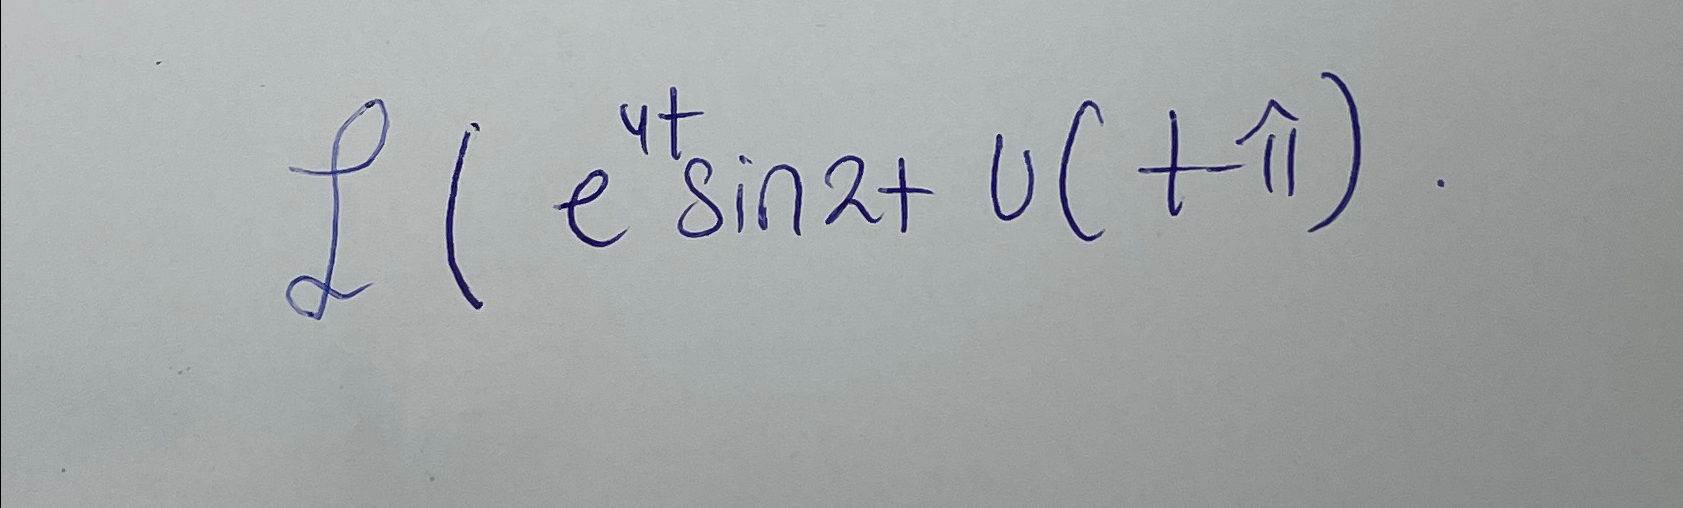 ℒ ( e^{4t} sin 2t U(t-π) .